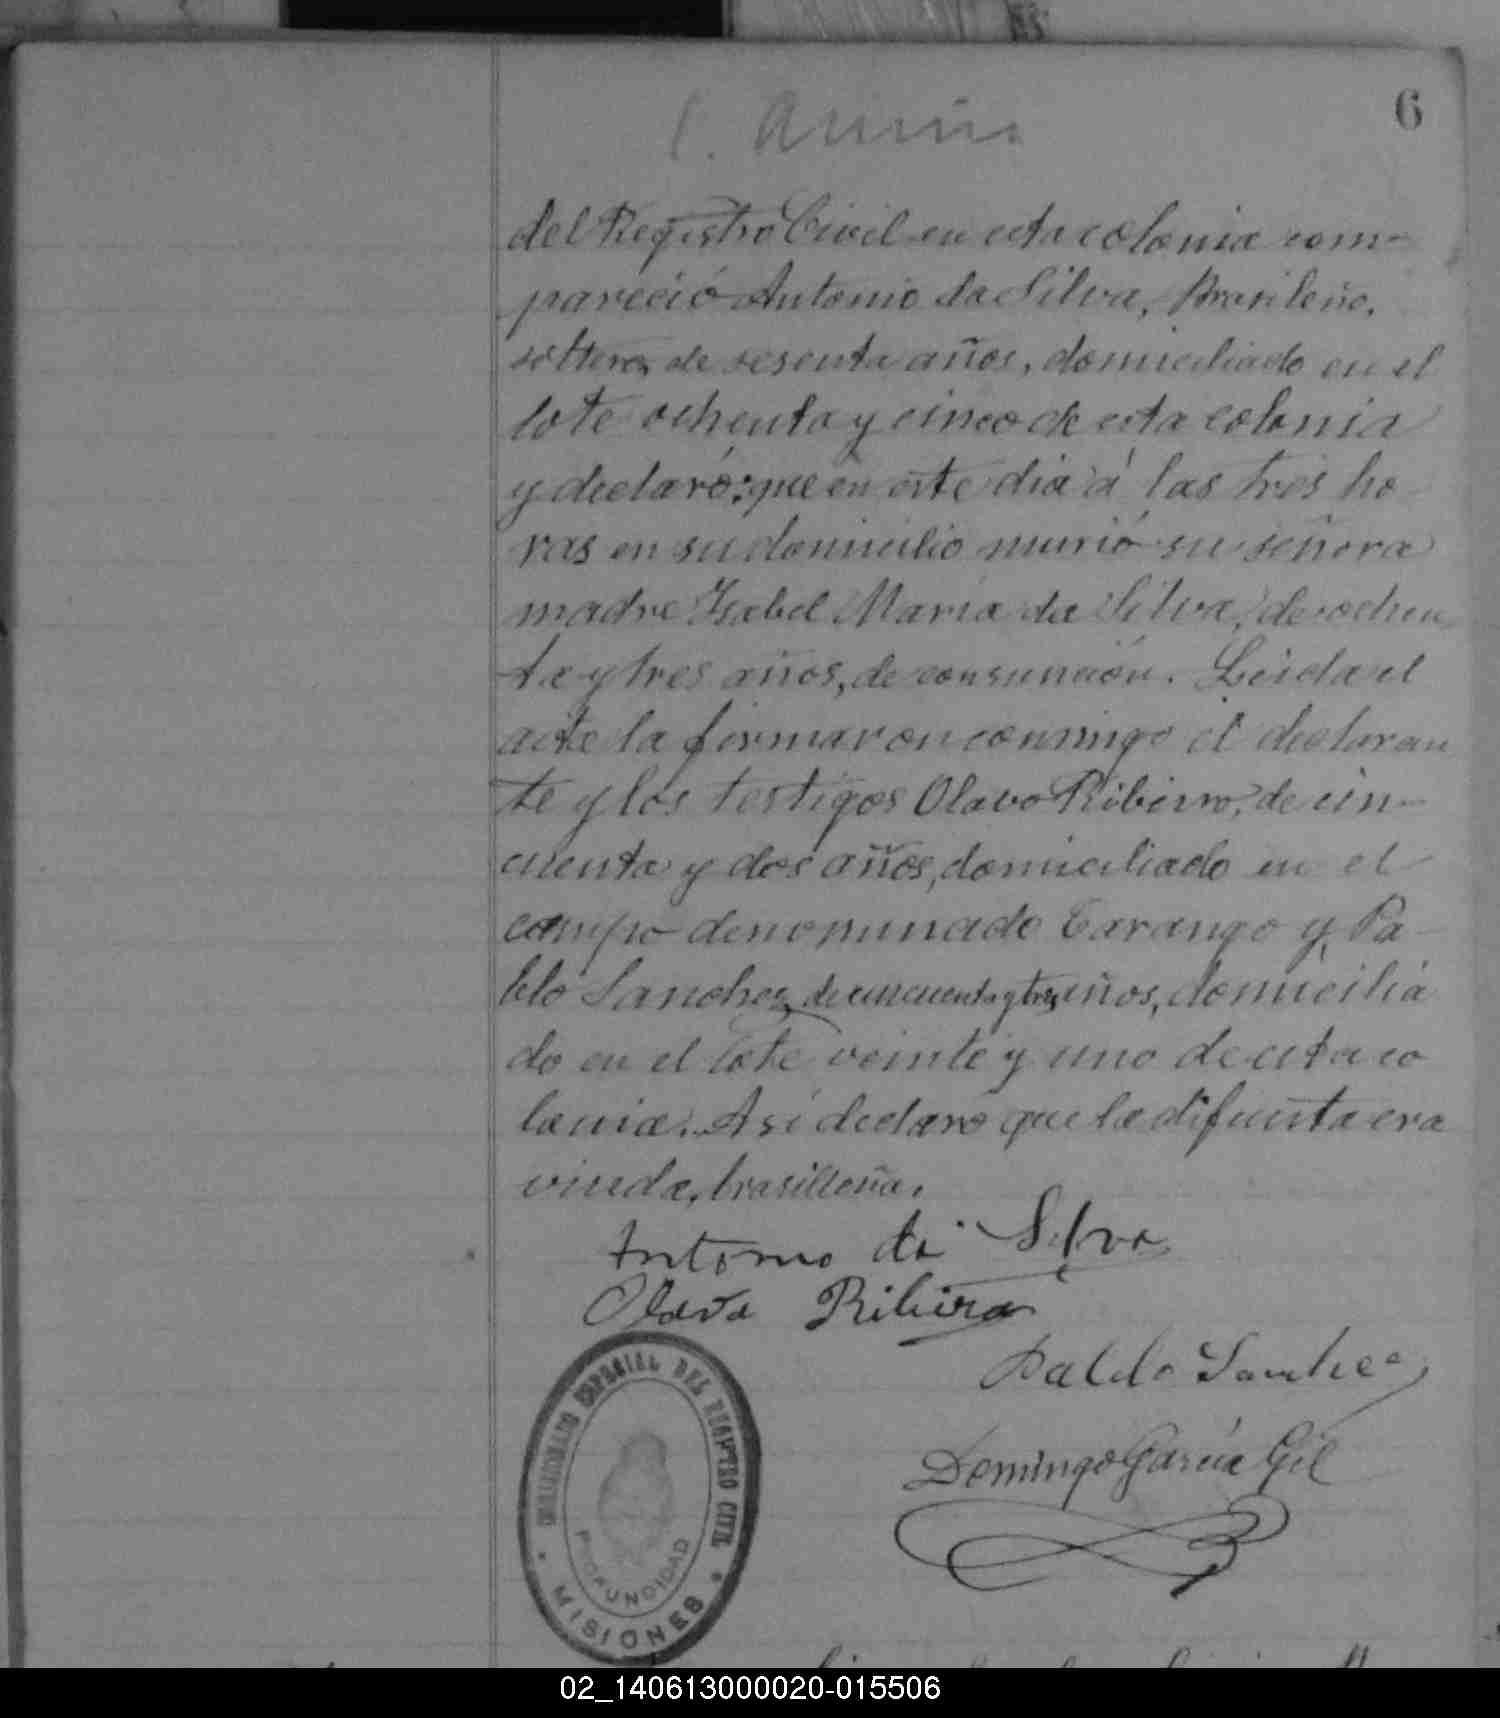 6
del Registro Civil en esta colonia com-
pareció Antonio da Silva, Brasileño,
soltero, de sesenta años, domiciliado en el
lote ochenta y cinco de esta colonia
y declaró: que en este dia á las tres ho
ras en su domicilio murió su señora
madre Isabel Maria da Silva, de ochen
ta y tres años, de consunción. Leida el
acta la firmaron conmigo el declaran
te y los testigos Olavo Ribeiro, de cin-
cuenta y dos años, domiciliado en el
campo denominado Tarango y Pa-
blo Sanchez, de cincuenta y tres años, domicilia
do en el lote veinte y uno de esta co
lonia. Asi declaró que la difunta era
viuda, brasilleña.
Antonio da Silva
Olavo Ribeiro
Pablo Sanchez
Domingo García Gil
ESPECIAL DEL REGISTRO CIVIL
PROFUNDIDAD
* MISIONES *
02_140613000020-015506